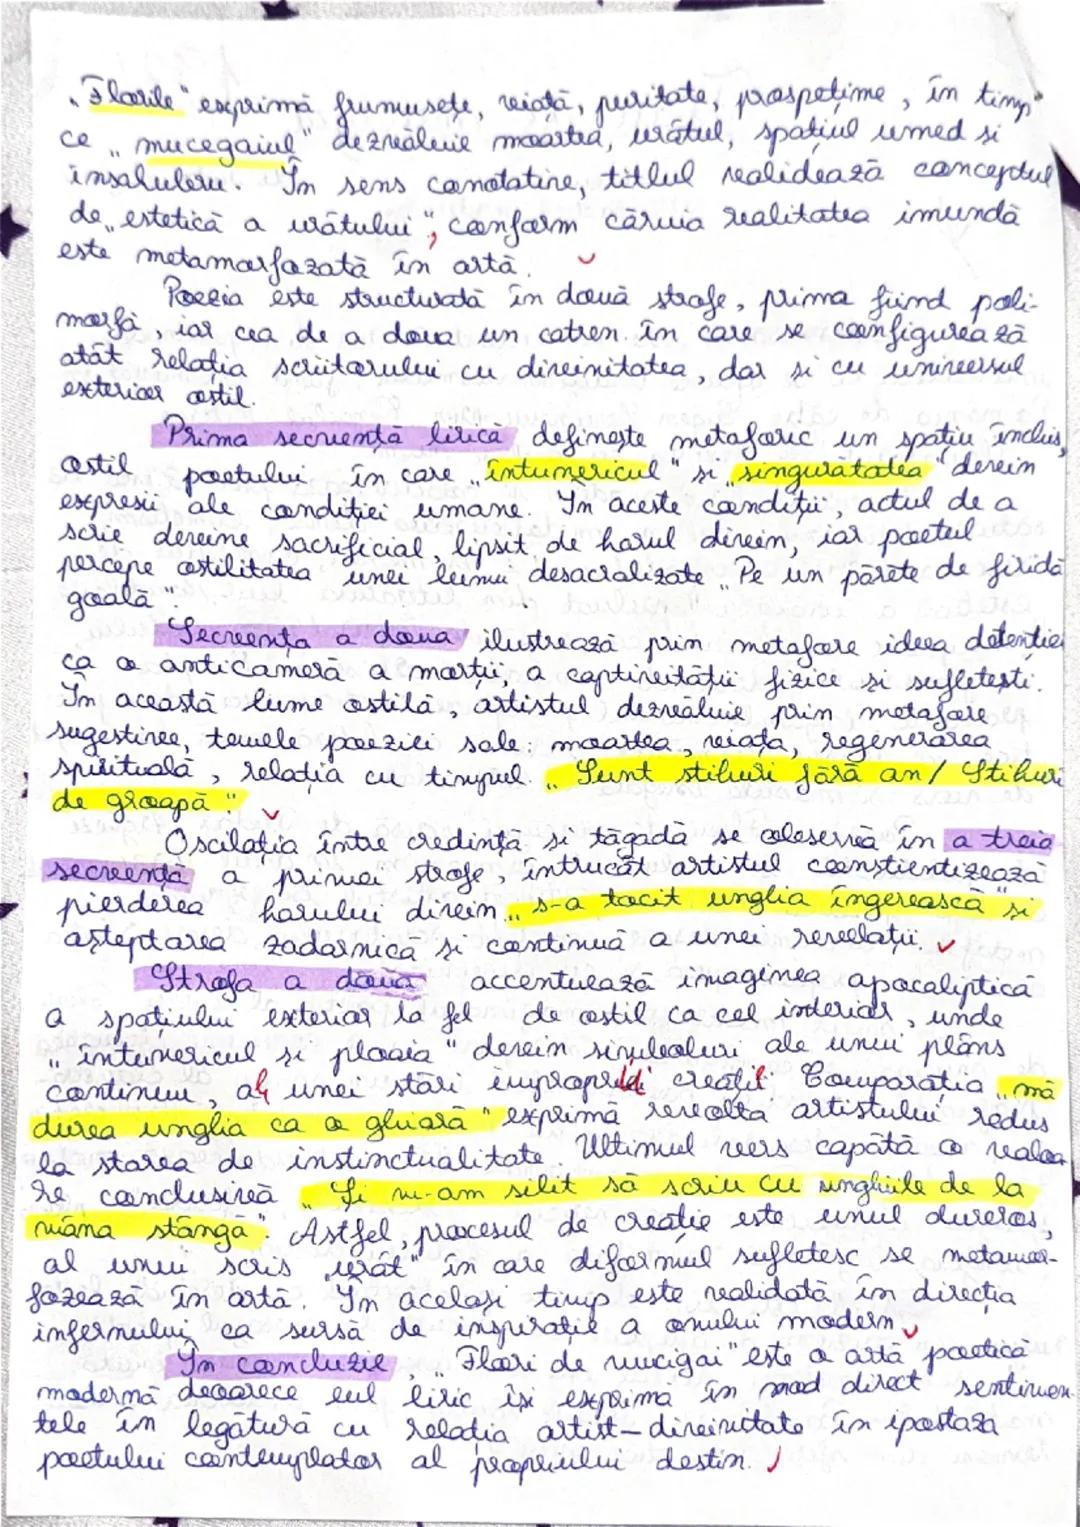 „Florile" exprimă frumusețe, viață, puritate, prospețime, în timp
ce „mucegaiul" dezvăluie moartea, urâtul, spațiul umed si
insalubru. În sens conotativ, titlul validează conceptul
de „estetică a urâtului", conform căruia realitatea imundă
este metamorfozată în artă.
Poezia este structurată în două strofe, prima fiind poli-
morfă, iar cea de a doua un catren în care se configurează
atât relația scriitorului cu divinitatea, dar si cu universul
exterior ostil.
Prima secvență lirică definește metaforic un spațiu închis,
ostil poetului în care „întunericul" si „singurătatea" devin
expresii ale condiției umane. În aceste condiții, actul de a
scrie devine sacrificial, lipsit de harul divin, iar poetul
percepe ostilitatea unei lumi desacralizate „Pe un părete de firidă
goală".
Secvența a doua ilustrează prin metafore ideea detenției
ca o anticameră a morții, a captivității fizice si sufletești.
În această lume ostilă, artistul dezvăluie prin metafore
sugestive, temele poeziei sale: moartea, viața, regenerarea
spirituală, relația cu timpul. „Sunt stihuri fără an/ Stihuri
de groapă".
Oscilația între credință si tăgadă se observă în a treia
secvență a primei strofe, întrucât artistul conștientizează
pierderea harului divin „s-a tocit unghia îngerească" si
așteptarea zadarnică si continuă a unei revelații.
Strofa a doua accentuează imaginea apocaliptică
a spațiului exterior la fel de ostil ca cel interior, unde
"întunericul și ploaia" devin simboluri ale unui plâns
continuu, al unei stări improprii creației. Comparația „mă
durea unghia ca o ghiară" exprimă revolta artistului redus
la starea de instinctualitate. Ultimul vers capătă o valoa
re conclusivă „Și m-am silit să scriu cu unghiile de la
mâna stângă". Astfel, procesul de creație este unul dureros,
al unui scris „urât" în care diformul sufletesc se metamor-
fozează în artă. În același timp este validată în direcția
infernului ca sursă de inspirație a omului modern.
În concluzie, „Flori de mucigai" este o artă poetică
modernă deoarece eul liric își exprimă în mod direct sentimen
tele în legătură cu relația artist-divinitate în ipostaza
poetului contemplator al propriului destin.